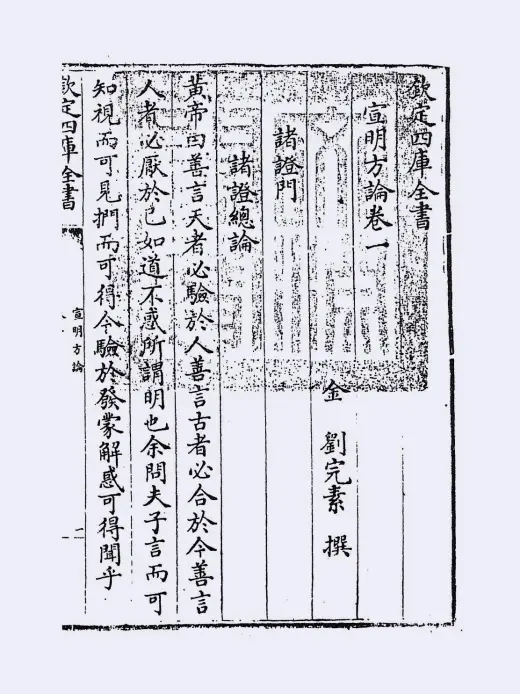 欽定四庫全書
宣明方論卷一
金 劉完素 撰
諸證門
諸證總論
黃帝曰善言天者必驗於人善言古者必合於今善言
人者必厭於已如道不惑所謂明也余問夫子言而可
知視而可見捫而可得令驗於發蒙解惑可得聞乎
欽定四庫全書
宣明方論